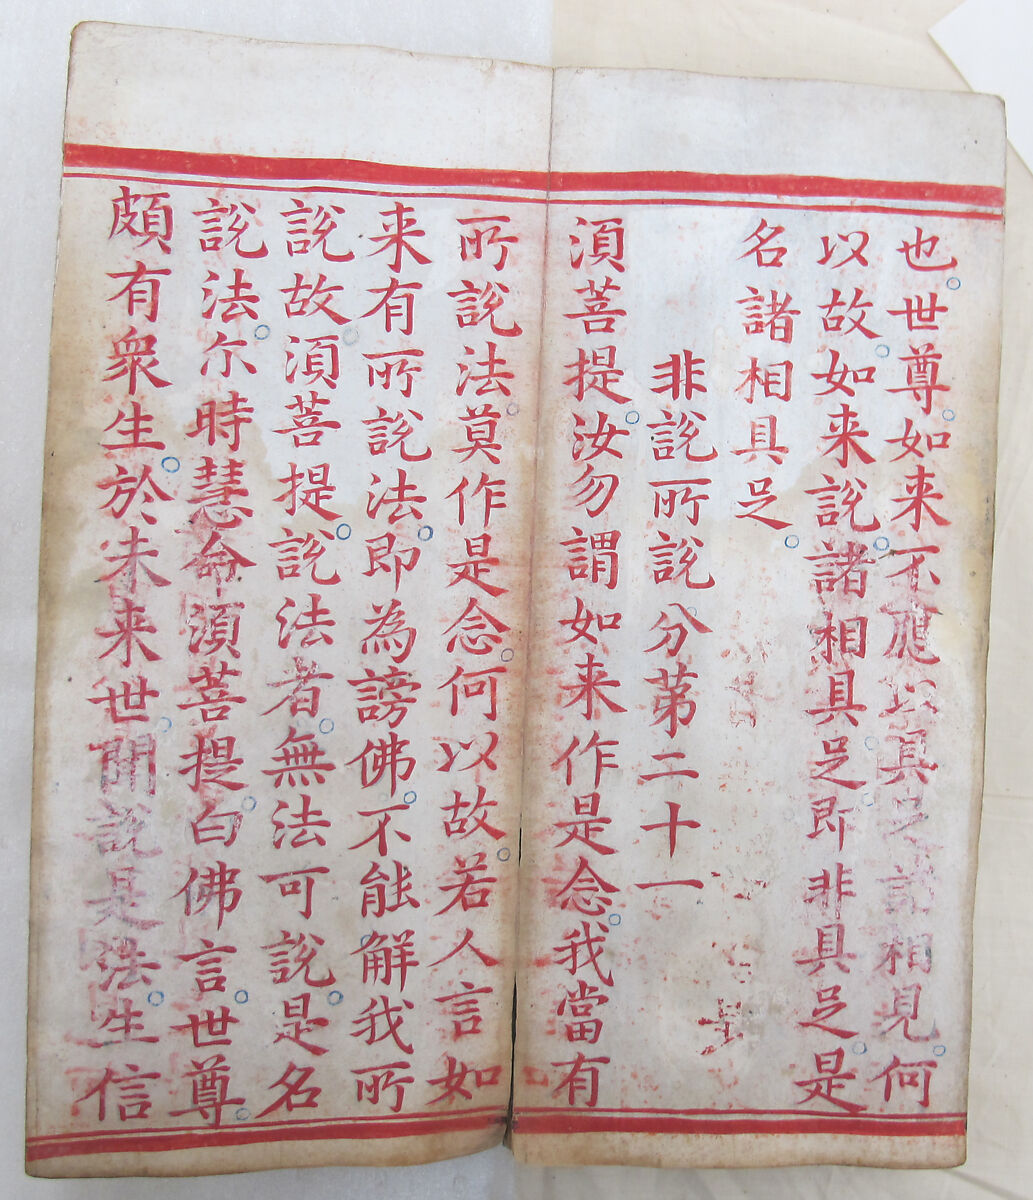 也世尊如来不應以具足諸相見何
以故如来說諸相具足即非具足是
名諸相具足
非說所說分第二十一
湏菩提汝勿謂如来作是念我當有
所說法莫作是念何以故若人言如
来有所說法即為謗佛不能解我所
說故湏菩提說法者無法可說是名
說法尒時慧命湏菩提白佛言世尊
頗有衆生於未来世聞說是法生信